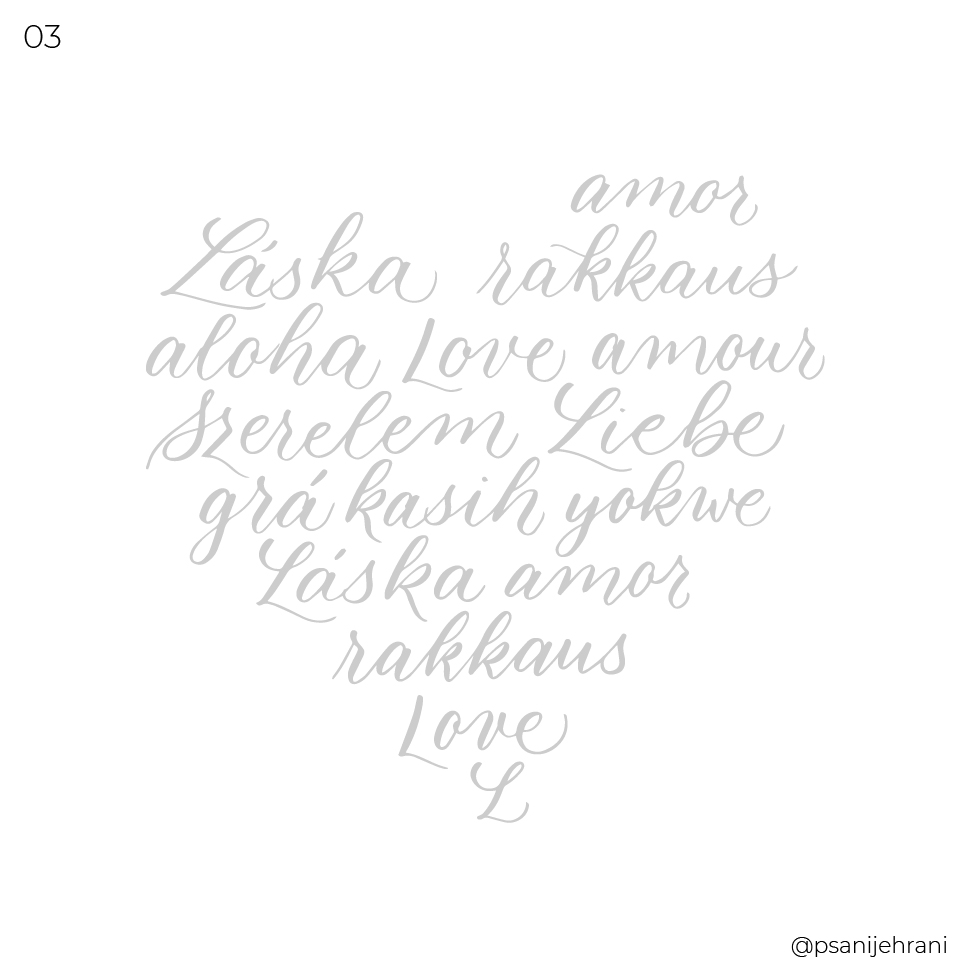 03
amor
Láska rakkaus
aloha Love amour
Szerelem Liebe
grá kasih yokwe
Láska amor
rakkaus
Love
L
@psanijehrani